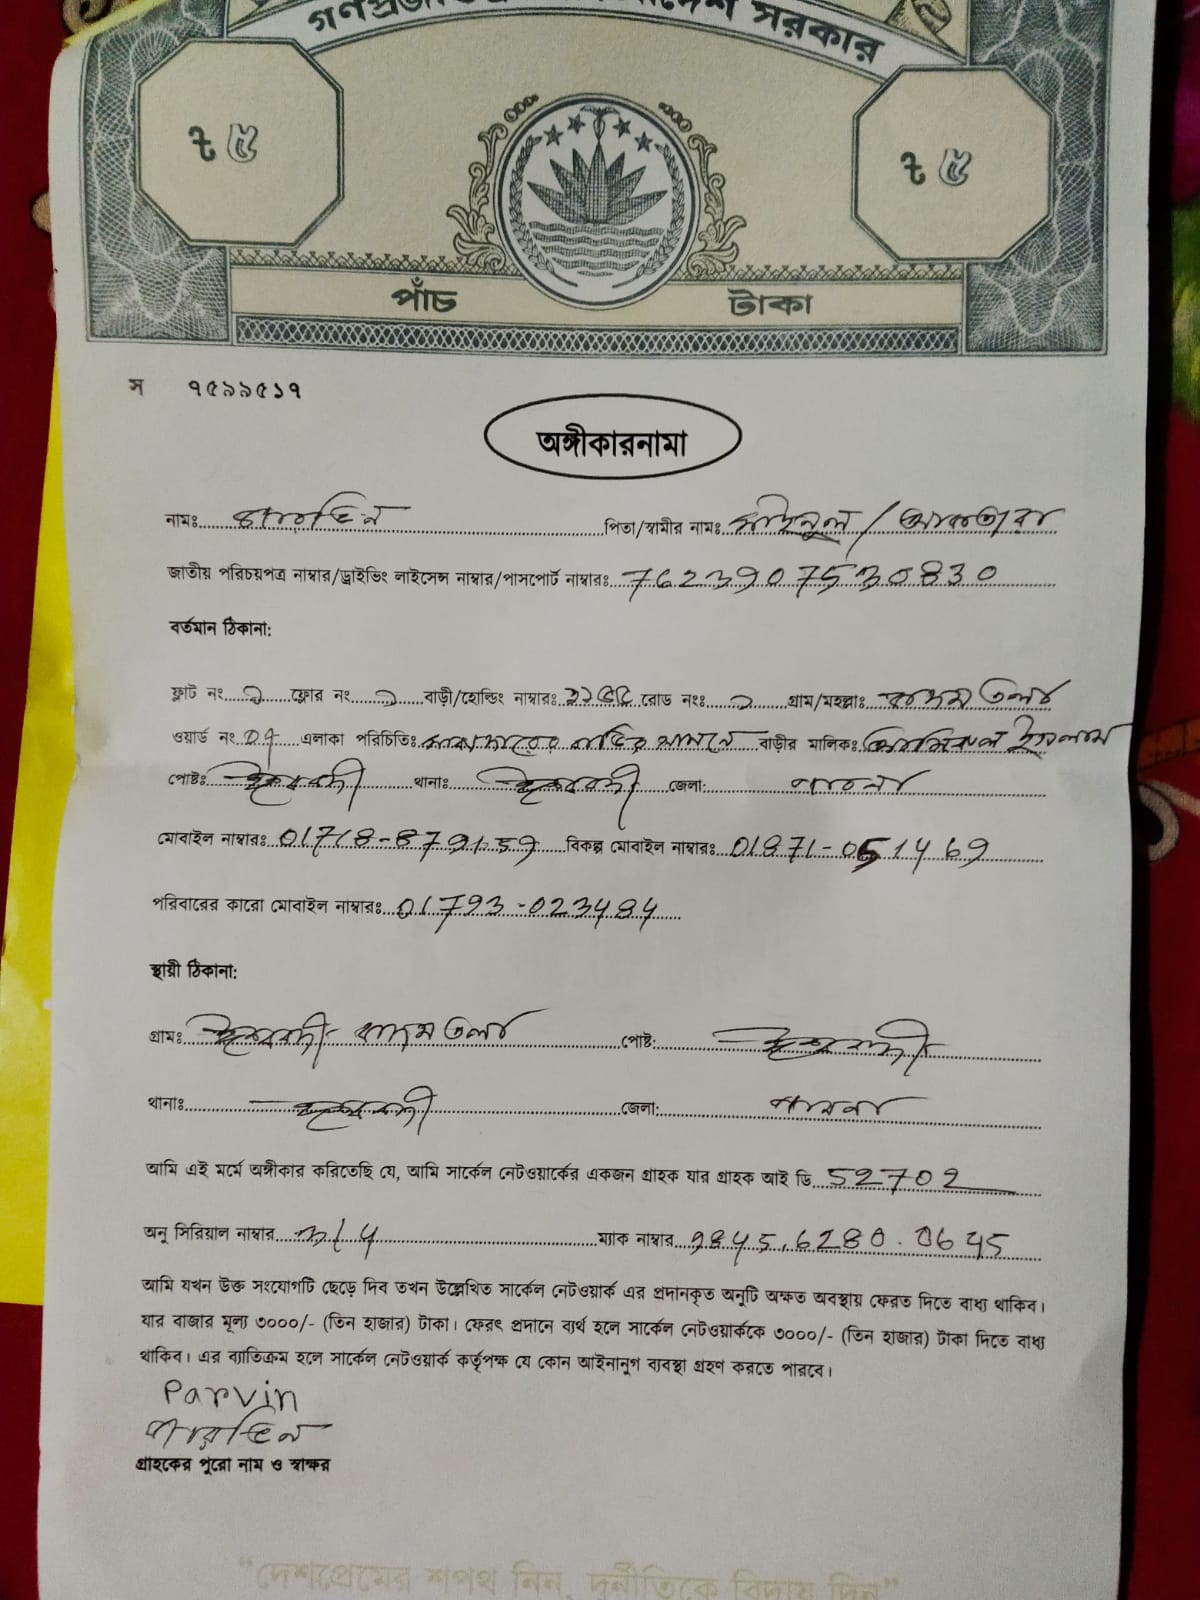 গণপ্রজাতন্ত্রী বাংলাদেশ সরকার
৳ ৫ ৳ ৫
পাঁচ টাকা
স ৭৫৯৯৫১৭
অঙ্গীকারনামা
নামঃ পারভিন পিতা/স্বামীর নামঃ
জাতীয় পরিচয়পত্র নাম্বার/ড্রাইভিং লাইসেন্স নাম্বার/পাসপোর্ট নাম্বারঃ 7623907530830
বর্তমান ঠিকানা:
ফ্লাট নং ফ্লোর নং বাড়ী/হোল্ডিং নাম্বারঃ রোড নংঃ গ্রাম/মহল্লাঃ
ওয়ার্ড নং এলাকা পরিচিতিঃ বাড়ির সামনে বাড়ীর মালিকঃ ইসলাম
পোষ্টঃ ঈশ্বরদী থানাঃ ঈশ্বরদী জেলা: পাবনা
মোবাইল নাম্বারঃ 01718-879159 বিকল্প মোবাইল নাম্বারঃ 01871-051469
পরিবারের কারো মোবাইল নাম্বারঃ 01793-023484
স্থায়ী ঠিকানা:
গ্রামঃ ঈশ্বরদী পোষ্ট: ঈশ্বরদী
থানাঃ ঈশ্বরদী জেলা: পাবনা
আমি এই মর্মে অঙ্গীকার করিতেছি যে, আমি সার্কেল নেটওয়ার্কের একজন গ্রাহক যার গ্রাহক আই ডি 52702
অনু সিরিয়াল নাম্বার ম্যাক নাম্বার 9845.6280.0645
আমি যখন উক্ত সংযোগটি ছেড়ে দিব তখন উল্লেখিত সার্কেল নেটওয়ার্ক এর প্রদানকৃত অনুটি অক্ষত অবস্থায় ফেরত দিতে বাধ্য থাকিব।
যার বাজার মূল্য ৩০০০/- (তিন হাজার) টাকা। ফেরৎ প্রদানে ব্যর্থ হলে সার্কেল নেটওয়ার্ককে ৩০০০/- (তিন হাজার) টাকা দিতে বাধ্য
থাকিব। এর ব্যাতিক্রম হলে সার্কেল নেটওয়ার্ক কর্তৃপক্ষ যে কোন আইনানুগ ব্যবস্থা গ্রহণ করতে পারবে।
Parvin
পারভিন
গ্রাহকের পুরো নাম ও স্বাক্ষর
"দেশপ্রেমের শপথ নিন, দুর্নীতিকে বিদায় দিন"